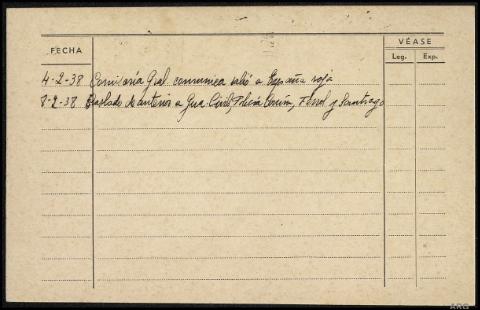 VÉASE
FECHA
Leg. Exp.
4-2-38 Comisaría Gral. comunica salió a España roja.
8-2-38 Traslado de anterior a Gua. Civil, Policía Coruña, Ferrol y Santiago
ARG